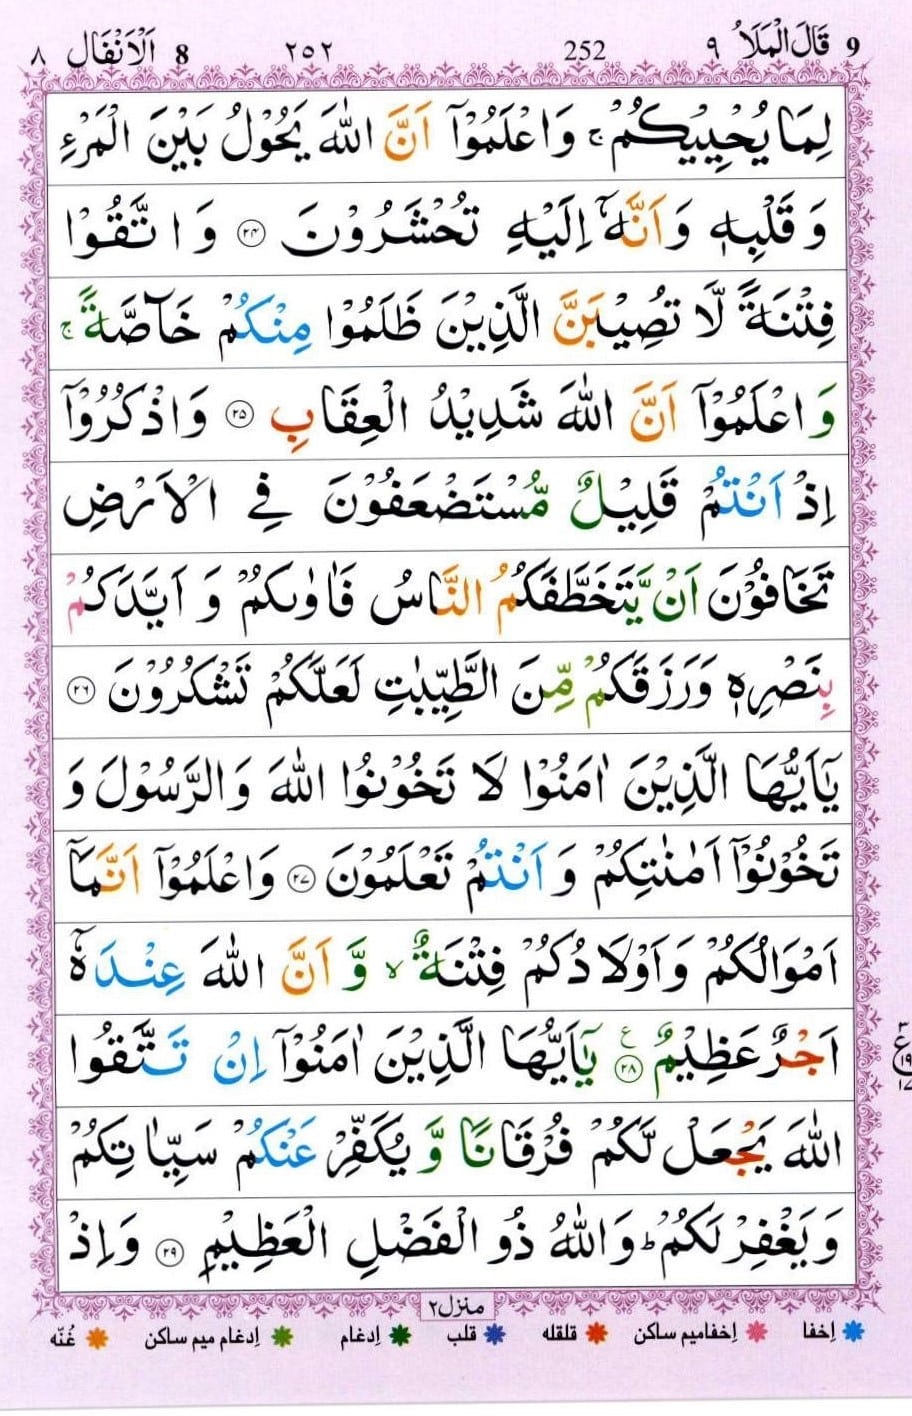 8 اَلْاَنْفَال ٨ ٢٥٢ 252 9 قَالَ الْمَلَاُ ٩
لِمَا يُحْيِيْكُمْ ۚ وَاعْلَمُوْۤا اَنَّ اللّٰهَ يَحُوْلُ بَيْنَ الْمَرْءِ
وَ قَلْبِهٖ وَاَنَّهٗۤ اِلَيْهِ تُحْشَرُوْنَ ۝۲۴ وَ اتَّقُوْا
فِتْنَةً لَّا تُصِيْبَنَّ الَّذِيْنَ ظَلَمُوْا مِنْكُمْ خَآصَّةً ۚ
وَ اعْلَمُوْۤا اَنَّ اللّٰهَ شَدِيْدُ الْعِقَابِ ۝۲۵ وَاذْكُرُوْۤا
اِذْ اَنْتُمْ قَلِيْلٌ مُّسْتَضْعَفُوْنَ فِي الْاَرْضِ
تَخَافُوْنَ اَنْ يَّتَخَطَّفَكُمُ النَّاسُ فَاٰوٰىكُمْ وَ اَيَّدَكُمْ
بِنَصْرِهٖ وَرَزَقَكُمْ مِّنَ الطَّيِّبٰتِ لَعَلَّكُمْ تَشْكُرُوْنَ ۝۲۶
يٰۤاَيُّهَا الَّذِيْنَ اٰمَنُوْا لَا تَخُوْنُوا اللّٰهَ وَالرَّسُوْلَ وَ
تَخُوْنُوْۤا اَمٰنٰتِكُمْ وَ اَنْتُمْ تَعْلَمُوْنَ ۝۲۷ وَاعْلَمُوْۤا اَنَّمَاۤ
اَمْوَالُكُمْ وَاَوْلَادُكُمْ فِتْنَةٌ ۙ وَّ اَنَّ اللّٰهَ عِنْدَهٗۤ
اَجْرٌ عَظِيْمٌ ۝۲۸ ع يٰۤاَيُّهَا الَّذِيْنَ اٰمَنُوْۤا اِنْ تَتَّقُوا
٣ ع ٩ ١٧
اللّٰهَ يَجْعَلْ لَّكُمْ فُرْقَانًا وَّ يُكَفِّرْ عَنْكُمْ سَيِّاٰتِكُمْ
وَيَغْفِرْ لَكُمْ ؕ وَاللّٰهُ ذُو الْفَضْلِ الْعَظِيْمِ ۝۲۹ وَاِذْ
منزل ٢
اِخفا اِخفامیم ساکن قلقله قلب اِدغام اِدغام میم ساکن غُنّه